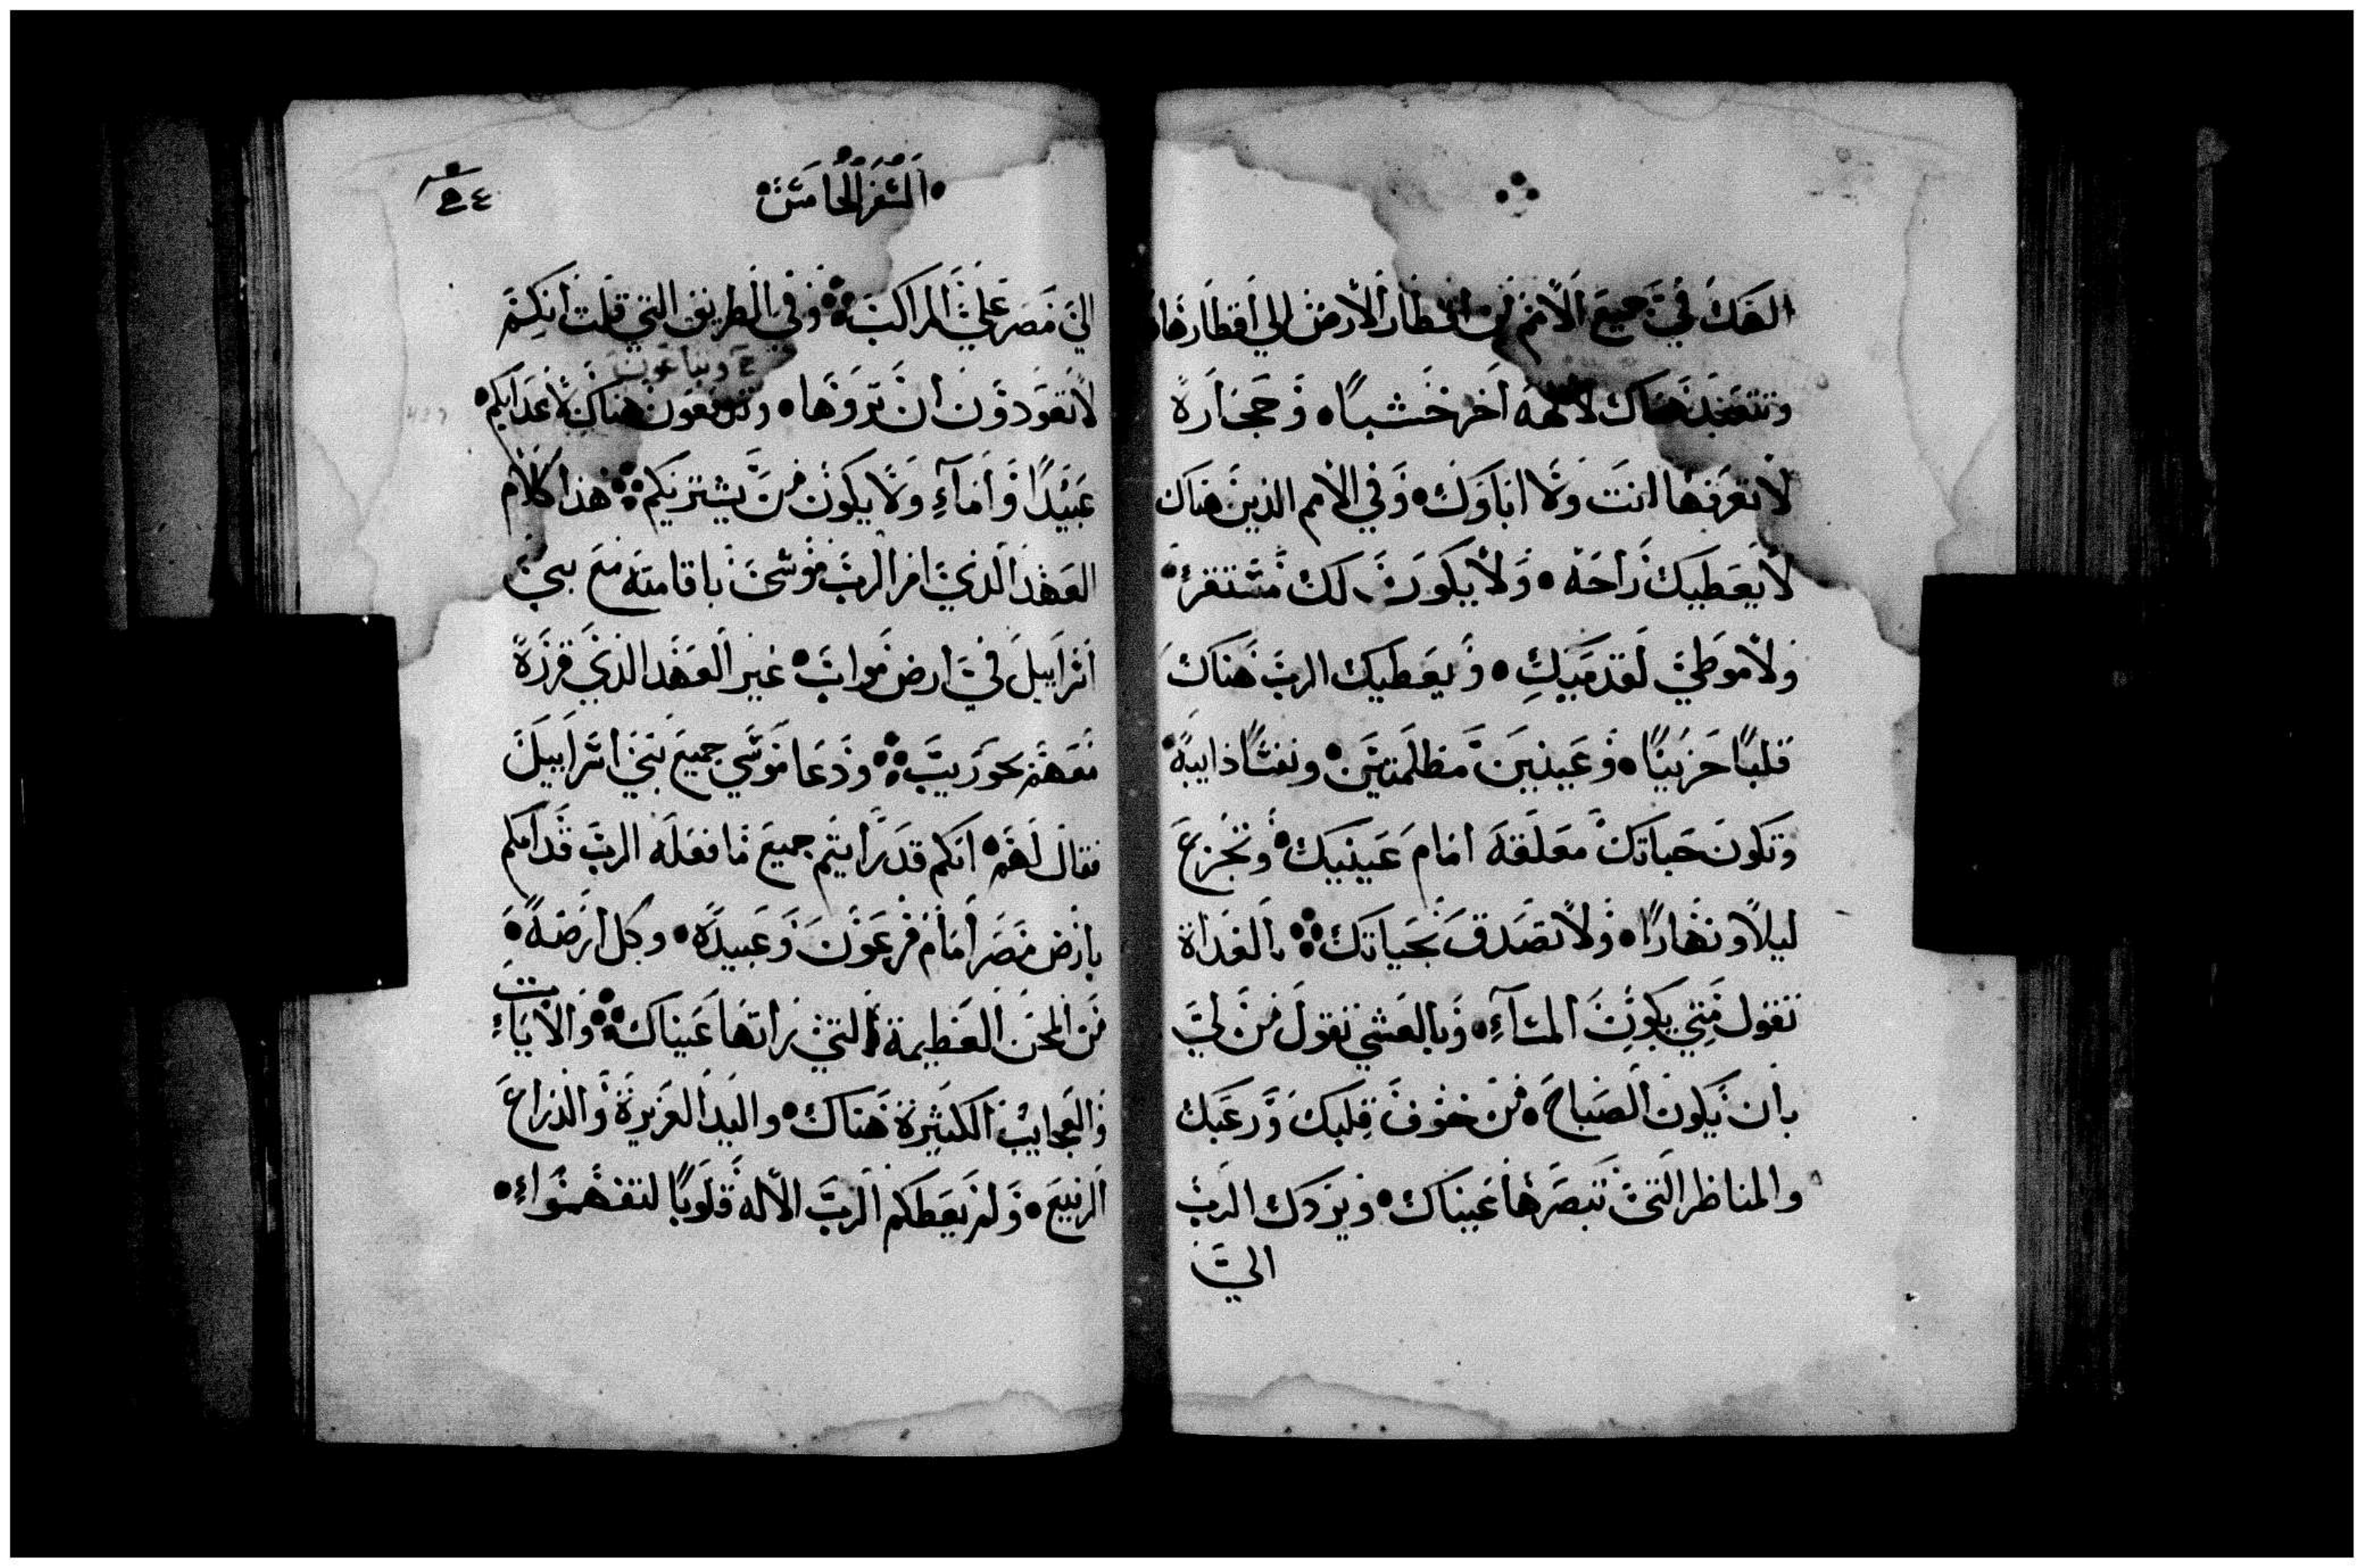 الهك في جميع الامم من اقطار الارض الي اقطارها
وتتعبد هناك لالهه اخر خشبًا وحجارة
لا تعرفها انت ولا اباوك وفي الامم الذين هناك
لا يعطيك راحة ولا يكون لك مستقر
ولا موطي لقدميك ويعطيك الرب هناك
قلبًا حزينًا وعينين مظلمتين ونفسًا ذايبةً
وتكون حياتك معلقة امام عينيك وتجزع
ليلًا ونهارًا ولا تصدق بحياتك بالغداة
تقول متي يكون المساء وبالعشي تقول من لي
بان يكون الصباح من خوف قلبك ورعبك
والمناظر التي تبصرها عيناك ويردك الرب
الي
السفر الخامس
الي مصر علي المراكب وفي الطريق التي قلت انكم
وتباعون
لا تعودون ان تروها هناك لاعدايكم
عبيدًا واماءً ولا يكون من يشتريكم هذا كلام
العهد الذي امر الرب موسي باقامته مع بني
اسراييل في ارض مواب غير العهد الذي قرره
معهم بحوريب ودعا موسي جميع بني اسراييل
فقال لهم انكم قد رايتم جميع ما فعله الرب قدامكم
بارض مصر امام فرعون وعبيده وكل ارضه
من المحن العظيمة التي راتها عيناك والايات
والعجايب الكثيرة هناك واليد العزيزة والذراع
الرفيع ولم يعطكم الرب الاله قلوبًا لتفهموا